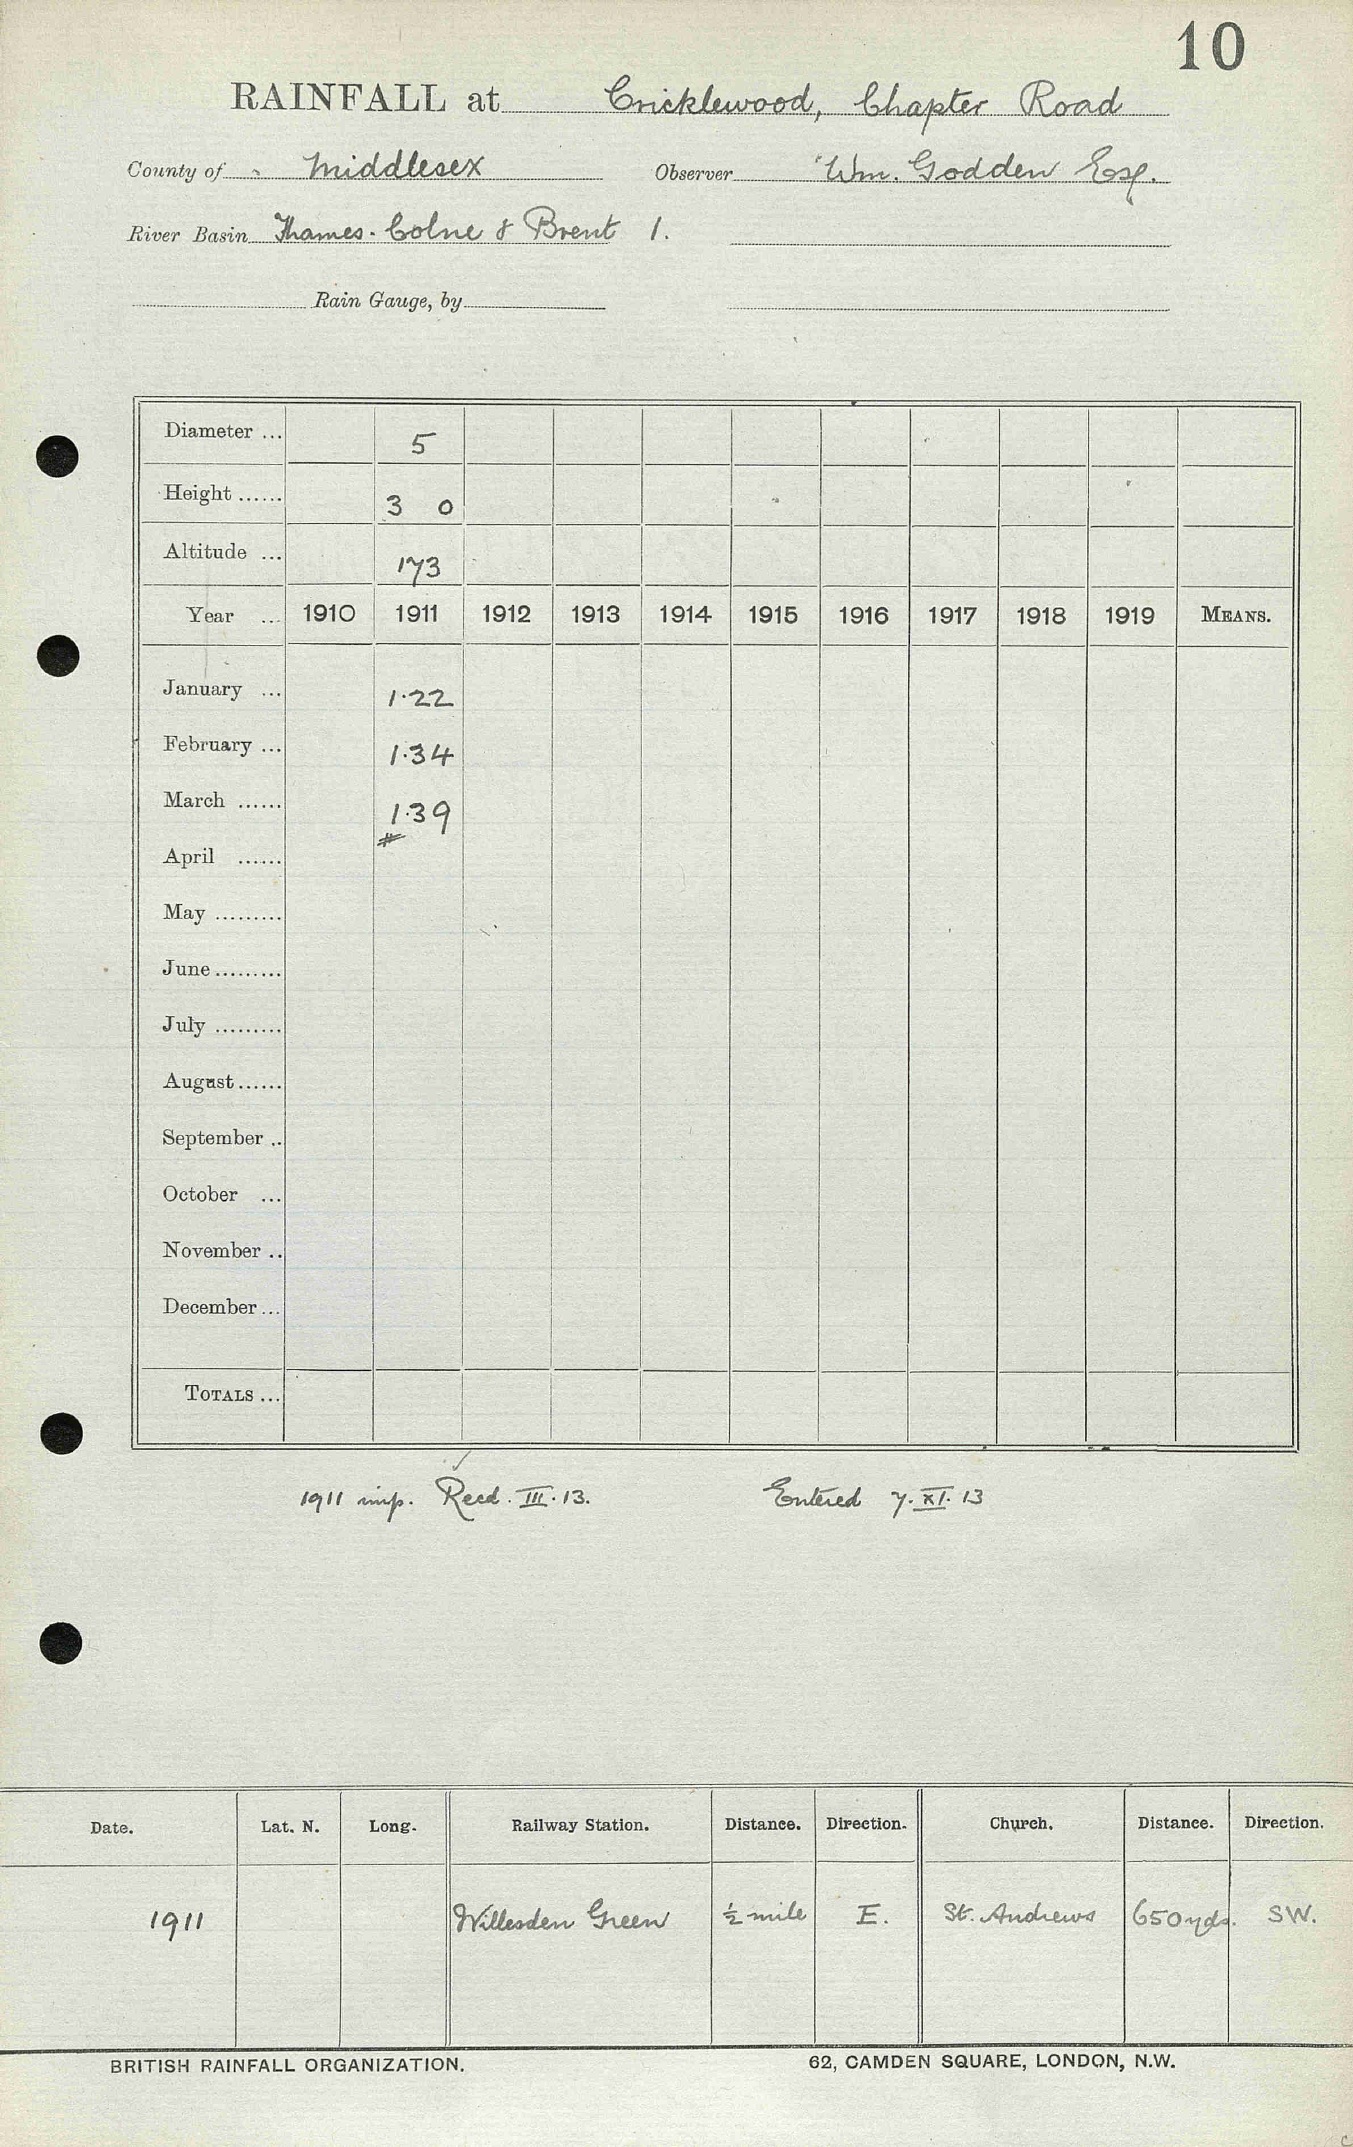 10
RAINFALL at Cricklewood, Chapter Road
County of Middlesex Observer Wm. Godden Esq.
River Basin Thames. Colne & Brent 1.
Rain Gauge, by
Diameter ... 5
Height ...... 3 0
Altitude ... 173
Year ... 1910 1911 1912 1913 1914 1915 1916 1917 1918 1919 MEANS.
January ... 1.22
February ... 1.34
March ...... 1.39
April ......
May .........
June .........
July .........
August ......
September ..
October ...
November ..
December ...
TOTALS ...
1911 imp. Recd. III. 13. Entered 7. XI. 13
Date. Lat. N. Long. Railway Station. Distance. Direction. Church. Distance. Direction.
1911 Willesden Green ½ mile E. St. Andrews 650 yds. SW.
BRITISH RAINFALL ORGANIZATION. 62, CAMDEN SQUARE, LONDON, N.W.